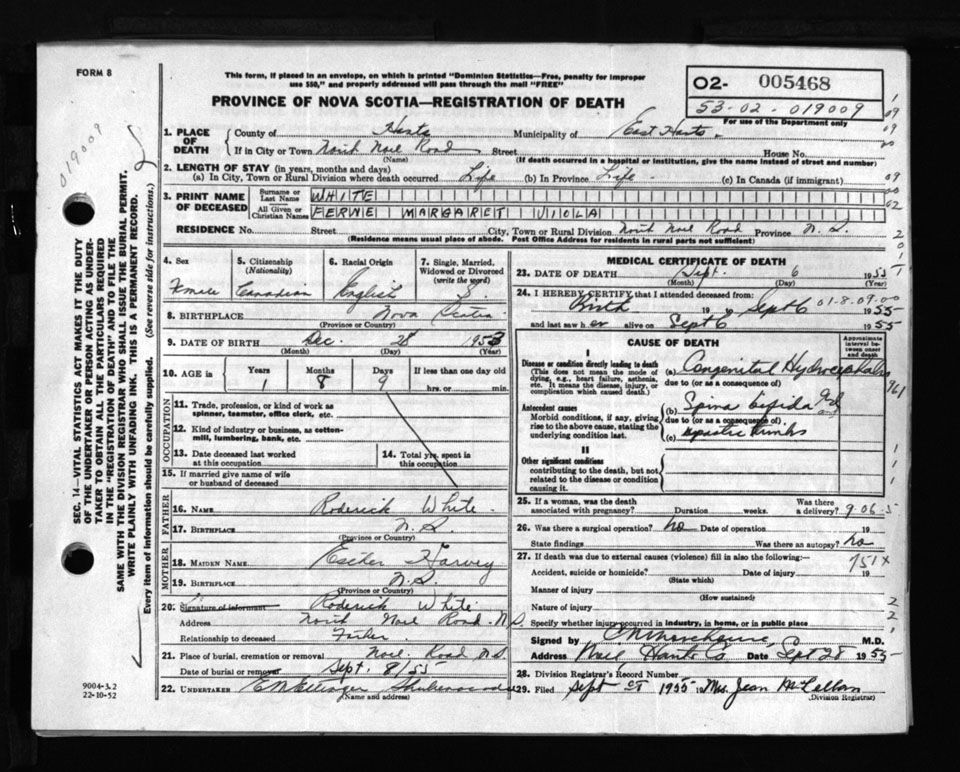 FORM 8
This form, if placed in an envelope, on which is printed "Dominion Statistics—Free, penalty for improper
use $50," and properly addressed will pass through the mail "FREE"
PROVINCE OF NOVA SCOTIA—REGISTRATION OF DEATH
02- 005468
53-02-019009
For use of the Department only
019009
1. PLACE OF DEATH
County of Hants Municipality of East Hants
If in City or Town Noel Road Street House No.
(Name) (If death occurred in a hospital or institution, give the name instead of street and number)
2. LENGTH OF STAY (in years, months and days)
(a) In City, Town or Rural Division where death occurred Life (b) In Province Life (c) In Canada (if immigrant)
3. PRINT NAME OF DECEASED
Surname or Last Name WHITE
All Given or Christian Names FERNE MARGARET VIOLA
RESIDENCE No. Street City, Town or Rural Division Noel Road Province N.S.
(Residence means usual place of abode. Post Office Address for residents in rural parts not sufficient)
4. Sex Female
5. Citizenship (Nationality) Canadian
6. Racial Origin English
7. Single, Married, Widowed or Divorced (write the word) S.
8. BIRTHPLACE Nova Scotia
(Province or Country)
9. DATE OF BIRTH Dec. 28 1953
(Month) (Day) (Year)
10. AGE in Years Months Days If less than one day
1 8 9 hrs. or min.
OCCUPATION
11. Trade, profession, or kind of work as spinner, teamster, office clerk, etc.
12. Kind of industry or business, as cotton-mill, lumbering, bank, etc.
13. Date deceased last worked at this occupation
14. Total yrs. spent in this occupation
15. If married give name of wife or husband of deceased
FATHER
16. NAME Roderick White
17. BIRTHPLACE N.S.
(Province or Country)
MOTHER
18. MAIDEN NAME Harvey
19. BIRTHPLACE N.S.
(Province or Country)
20. Signature of informant Roderick White
Address Noel Road N.S.
Relationship to deceased Father
21. Place of burial, cremation or removal Noel Road N.S.
Date of burial or removal Sept. 8/55
22. UNDERTAKER
(Name and address)
MEDICAL CERTIFICATE OF DEATH
23. DATE OF DEATH Sept. 6 1955
(Month) (Day) (Year)
24. I HEREBY CERTIFY that I attended deceased from:
Birth 19 to Sept 6 1955
01-8-09-00
and last saw her alive on Sept 6 1955
CAUSE OF DEATH
Approximate interval between onset and death
I
Disease or condition directly leading to death
(This does not mean the mode of dying, e.g., heart failure, asthenia, etc. It means the disease, injury, or complication which caused death.)
(a) Congenital Hydrocephalus
due to (or as a consequence of)
Antecedent causes
Morbid conditions, if any, giving rise to the above cause, stating the underlying condition last.
(b) Spina bifida and
due to (or as a consequence of)
(c) spastic limbs
II
Other significant conditions
contributing to the death, but not related to the disease or condition causing it.
961
25. If a woman, was the death associated with pregnancy? Duration weeks. Was there a delivery?
9-06-5
26. Was there a surgical operation? no Date of operation 19
State findings Was there an autopsy? no
27. If death was due to external causes (violence) fill in also the following:—
751X
Accident, suicide or homicide? Date of injury 19
(State which)
Manner of injury
(How sustained)
Nature of injury
Specify whether injury occurred in industry, in home, or in public place
Signed by M.D.
Address Noel Hants Co Date Sept 28 1955
28. Division Registrar's Record Number
29. Filed Sept 1955 Mrs. Jean McLellan
(Division Registrar)
SEC. 14—VITAL STATISTICS ACT MAKES IT THE DUTY
OF THE UNDERTAKER OR PERSON ACTING AS UNDER-
TAKER TO OBTAIN ALL THE PARTICULARS REQUIRED
IN THE "REGISTRATION OF DEATH" AND TO FILE THE
SAME WITH THE DIVISION REGISTRAR WHO SHALL ISSUE THE BURIAL PERMIT.
WRITE PLAINLY WITH UNFADING INK. THIS IS A PERMANENT RECORD.
Every item of information should be carefully supplied. (See reverse side for instructions.)
9004-3.2
22-10-52